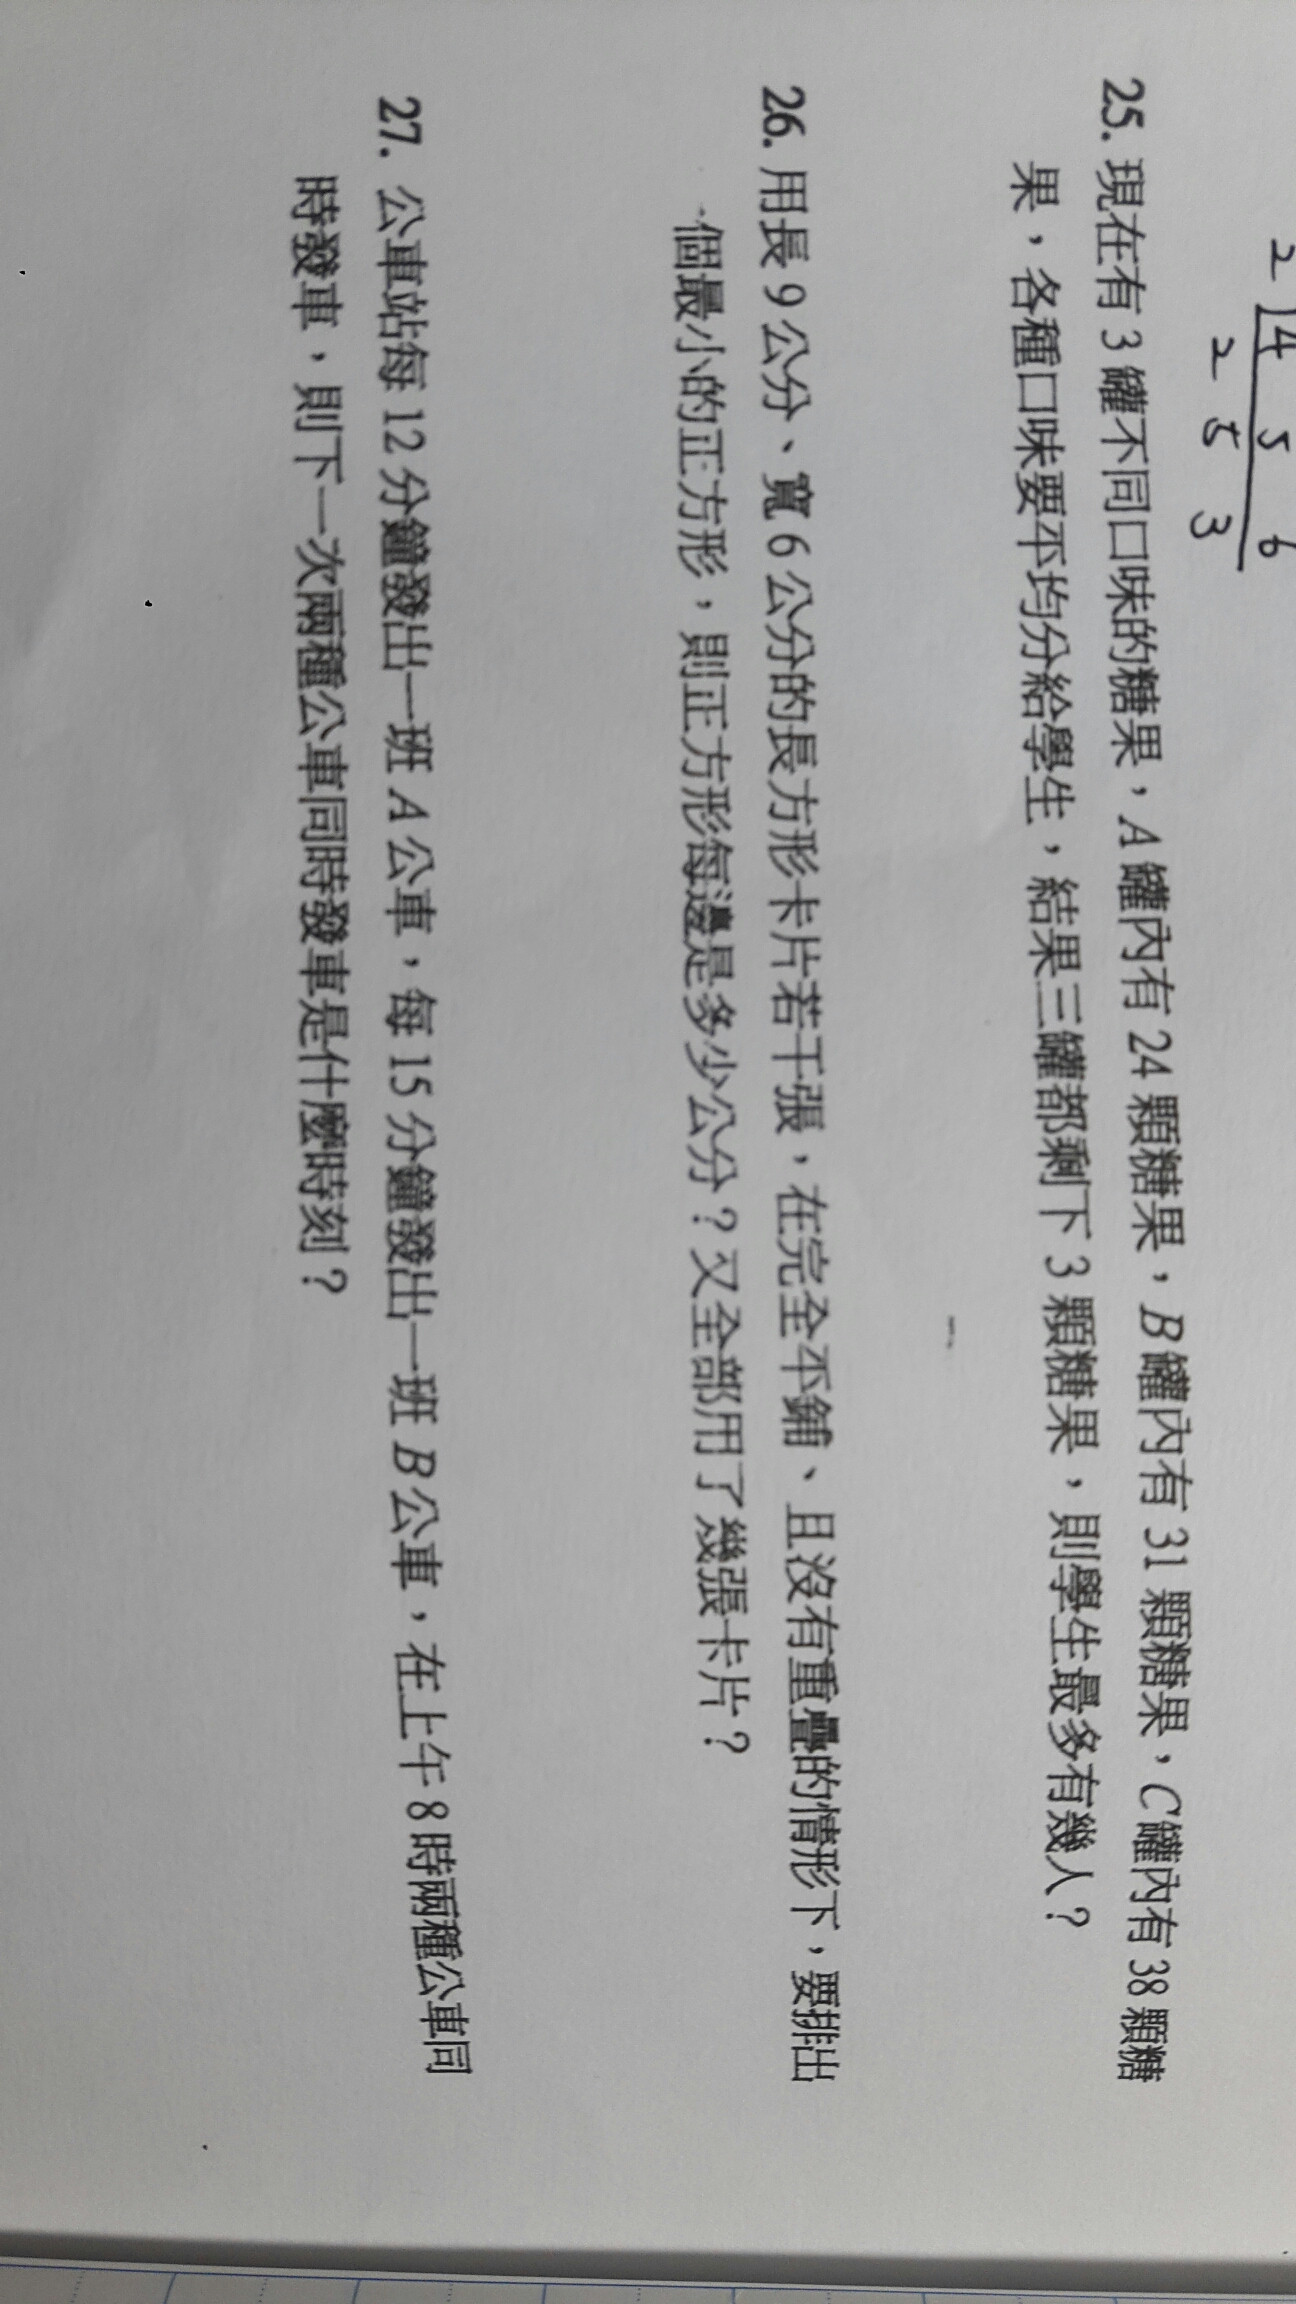 2 4 5 6
2 5 3
25. 現在有 3 罐不同口味的糖果，A 罐內有 24 顆糖果，B 罐內有 31 顆糖果，C 罐內有 38 顆糖
果，各種口味要平均分給學生，結果三罐都剩下 3 顆糖果，則學生最多有幾人？
26. 用長 9 公分、寬 6 公分的長方形卡片若干張，在完全平鋪、且沒有重疊的情形下，要排出
個最小的正方形，則正方形每邊是多少公分？又全部用了幾張卡片？
27. 公車站每 12 分鐘發出一班 A 公車，每 15 分鐘發出一班 B 公車，在上午 8 時兩種公車同
時發車，則下一次兩種公車同時發車是什麼時刻？